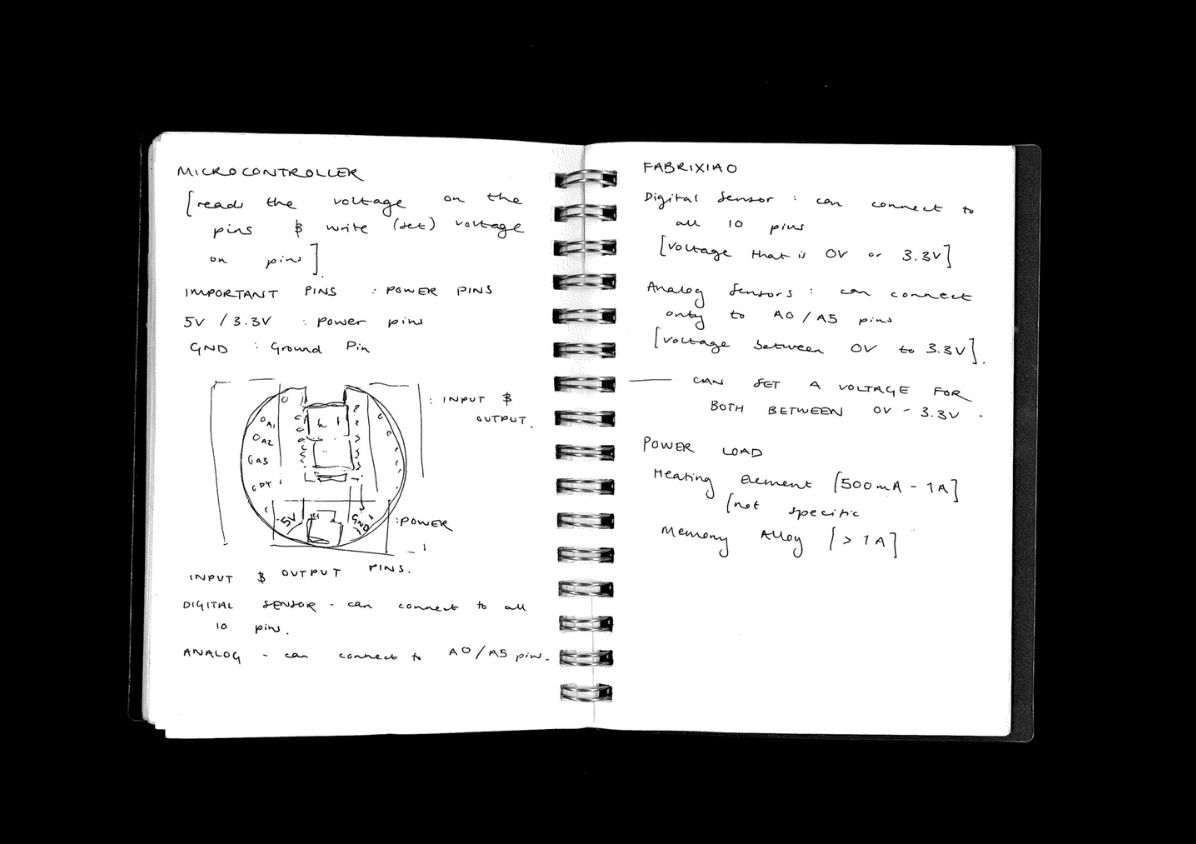 MICROCONTROLLER
[reads the voltage on the
pins & write (set) voltage
on pins].
IMPORTANT PINS : POWER PINS
5V / 3.3V : power pins
GND : Ground Pin
: INPUT &
OUTPUT.
A1
A2
A3
5V
GND
: POWER
INPUT & OUTPUT PINS.
DIGITAL SENSOR - can connect to all
10 pins.
ANALOG - can connect to A0/A5 pins.
FABRIXIAO
Digital Sensor : can connect to
all 10 pins
[voltage that is 0V or 3.3V]
Analog Sensors : can connect
only to A0/A5 pins
[voltage between 0V to 3.3V].
— CAN SET A VOLTAGE FOR
BOTH BETWEEN 0V - 3.3V .
POWER LOAD
Heating Element [500mA - 1A]
[not specific
Memory Alloy [> 1A]